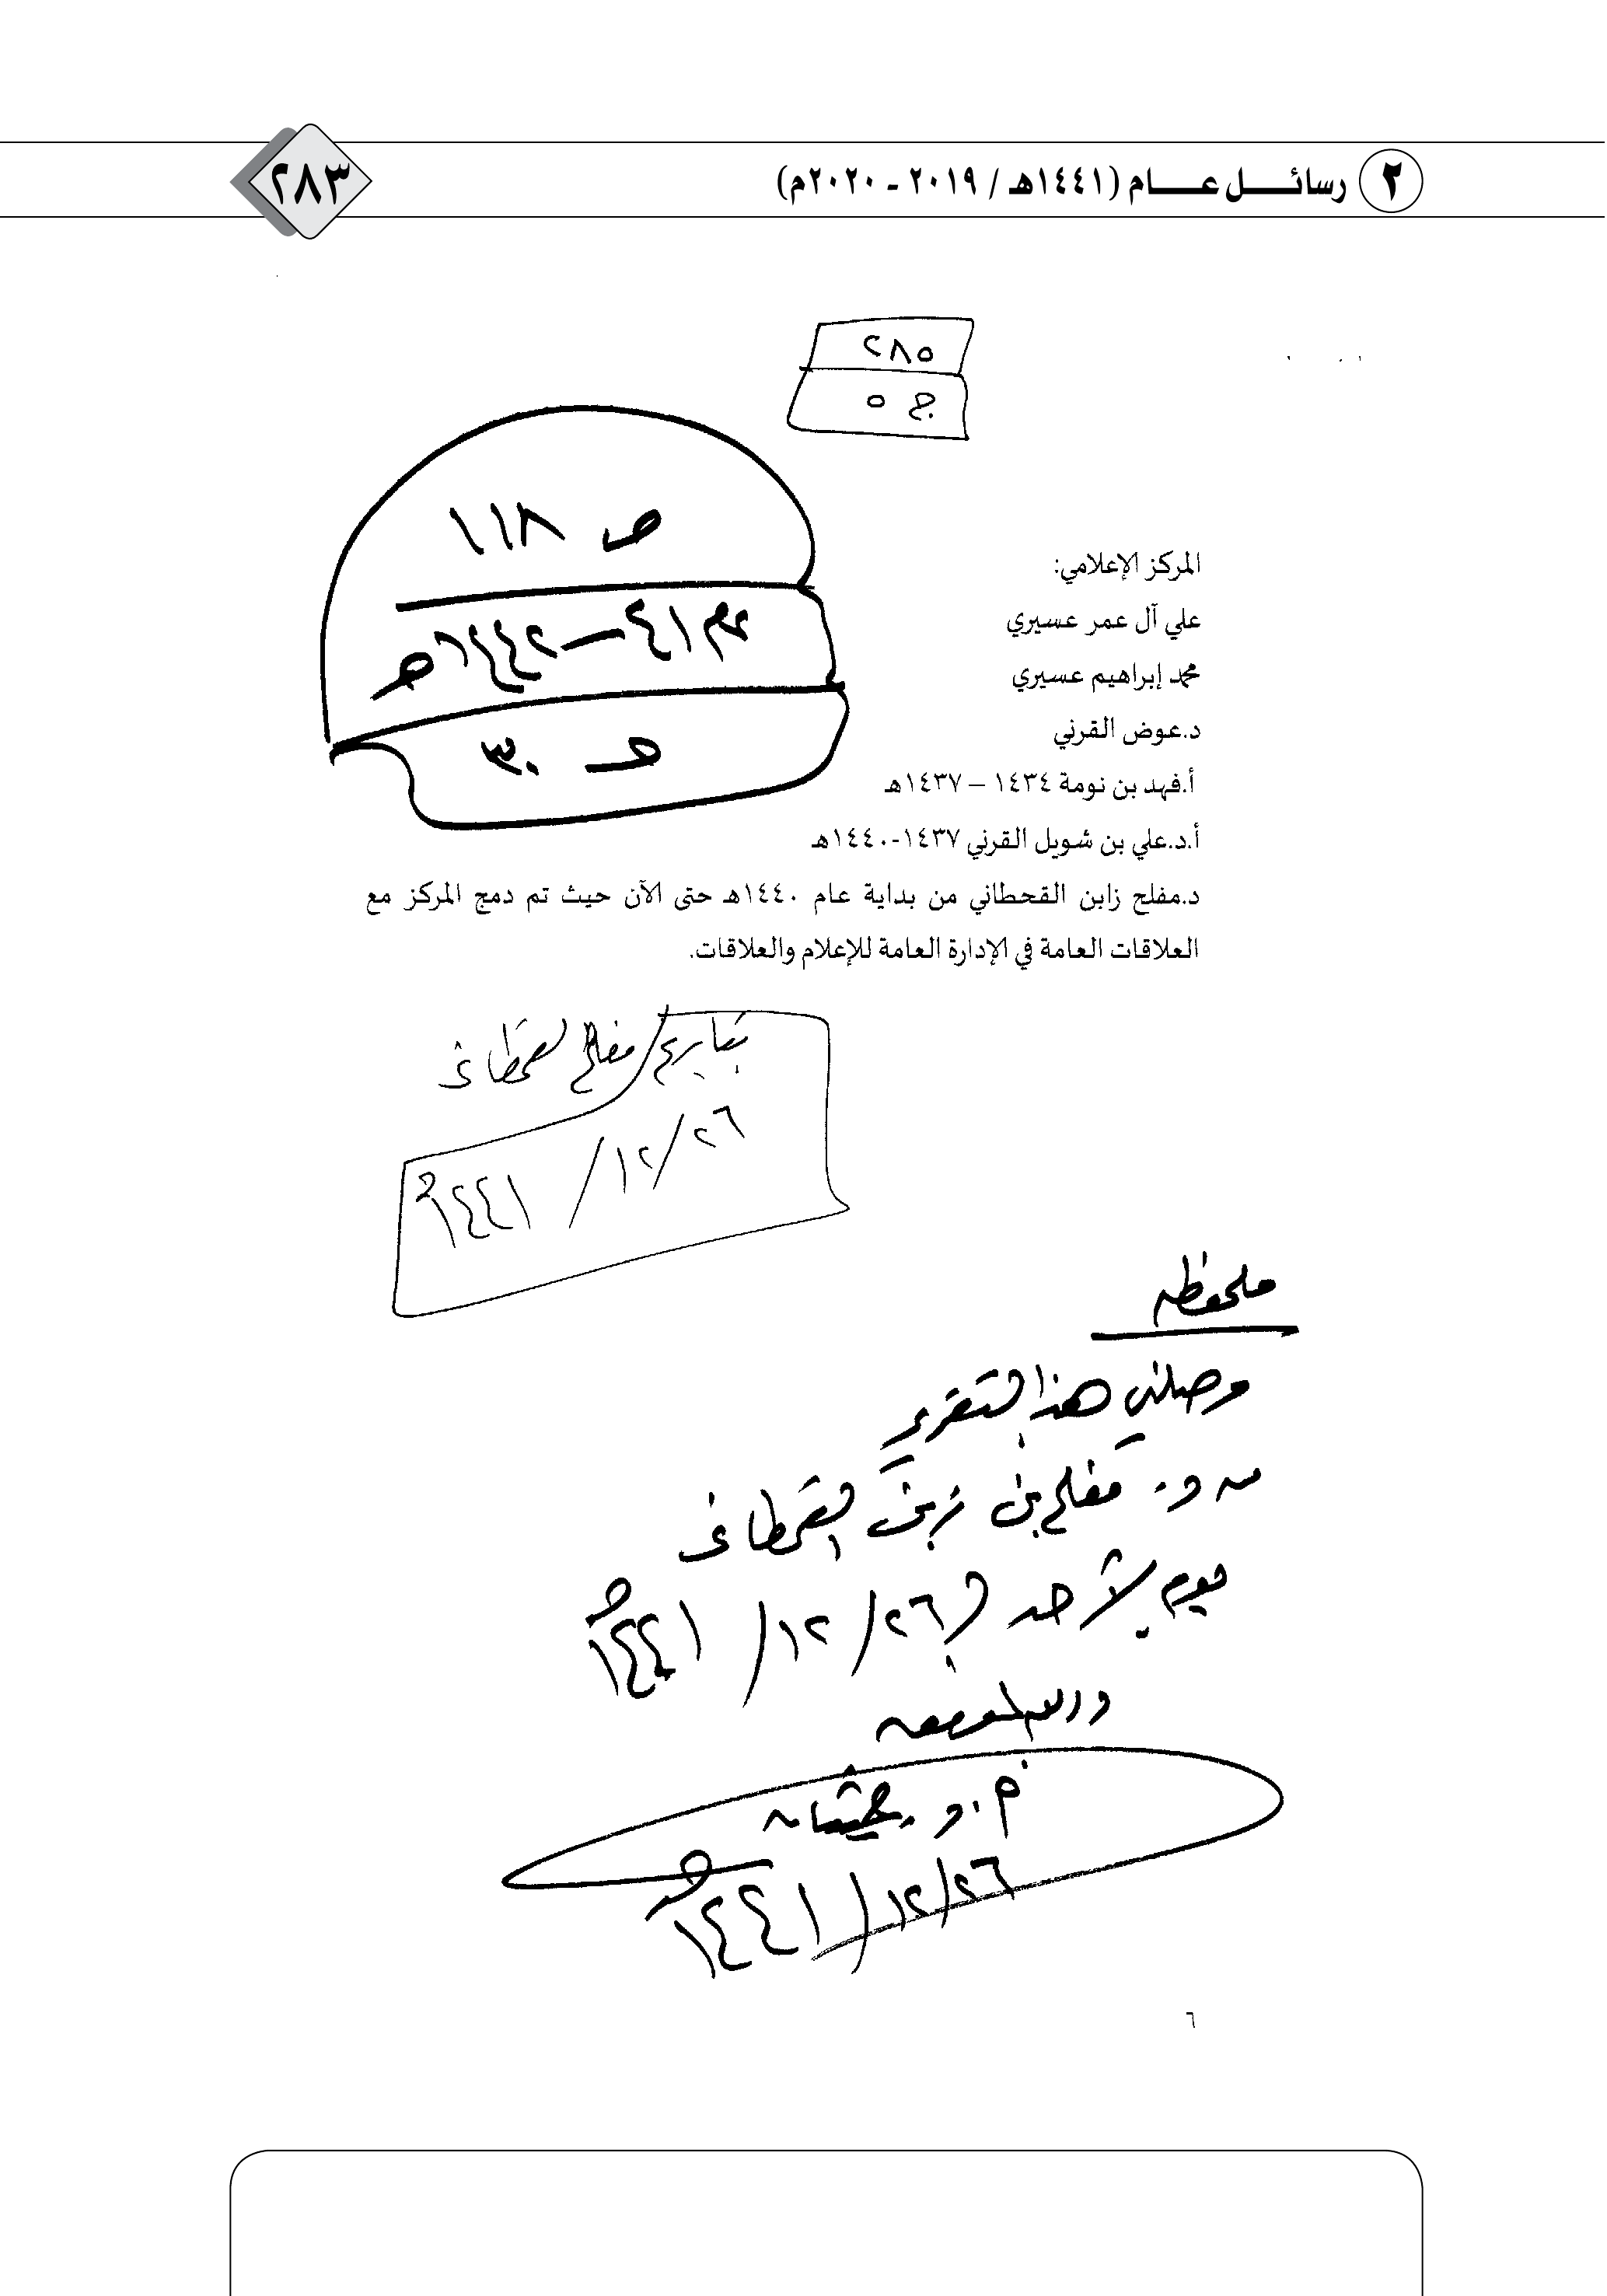 ٢ رسائل عام (١٤٤١هـ / ٢٠١٩ - ٢٠٢٠م)
٢٨٣
٢٨٥
ج ٥
ص ١١٨
٤١ - ١٤٤٢هـ
هـ ٣٠
المركز الإعلامي:
علي آل عمر عسيري
محمد إبراهيم عسيري
د.عوض القرني
أ.فهد بن نومة ١٤٣٤ – ١٤٣٧هـ
أ.د.علي بن شويل القرني ١٤٣٧-١٤٤٠هـ
د.مفلح زابن القحطاني من بداية عام ١٤٤٠هـ حتى الآن حيث تم دمج المركز مع
العلاقات العامة في الإدارة العامة للإعلام والعلاقات.
مفلح القحطاني
٢٦ / ١٢ / ١٤٤١هـ
ملحوظة
وصلني هذا التقرير
من د. مفلح بن زبن القحطاني
يوم الأحد في ٢٦ / ١٢ / ١٤٤١هـ
والله الموفق
٢٦ / ١٢ / ١٤٤١هـ
٦